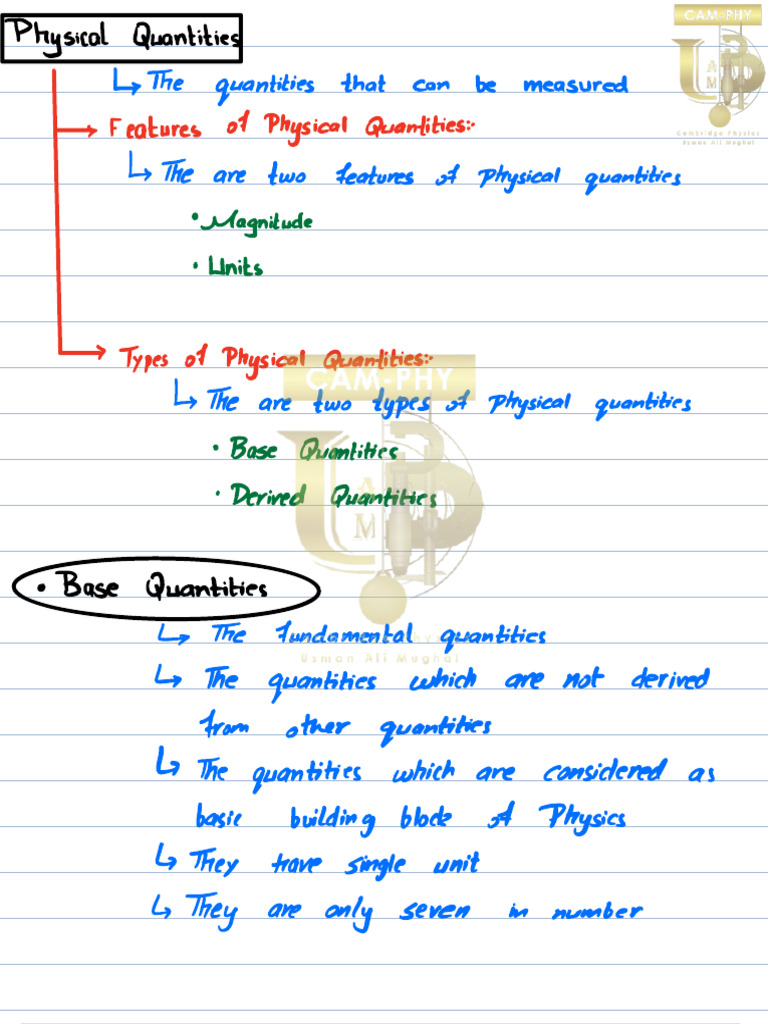 Physical Quantities
CAM-PHY
The quantities that can be measured
Features of Physical Quantities:-
Cambridge Physics
Usman Ali Mughal
The are two features of Physical quantities
• Magnitude
• Units
Types of Physical Quantities:-
CAM-PHY
The are two types of Physical quantities
• Base Quantities
• Derived Quantities
• Base Quantities
The fundamental quantities
Usman Ali Mughal
The quantities which are not derived
from other quantities
The quantities which are considered as
basic building block of Physics
They have single unit
They are only seven in number